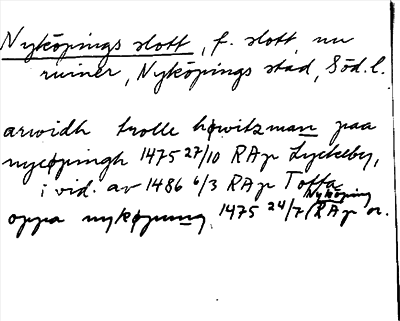 Nyköpings slott, f. slott, nu
ruiner, Nyköpings stad, Söd. l.
arwidh trolle høwitzman paa
nycøpingh 1475 27/10 RAp Lyckeby,
i vid. av 1486 6/3 RAp Toffta
oppa nykøpung 1475 24/7 (Nyköping) RAp or.